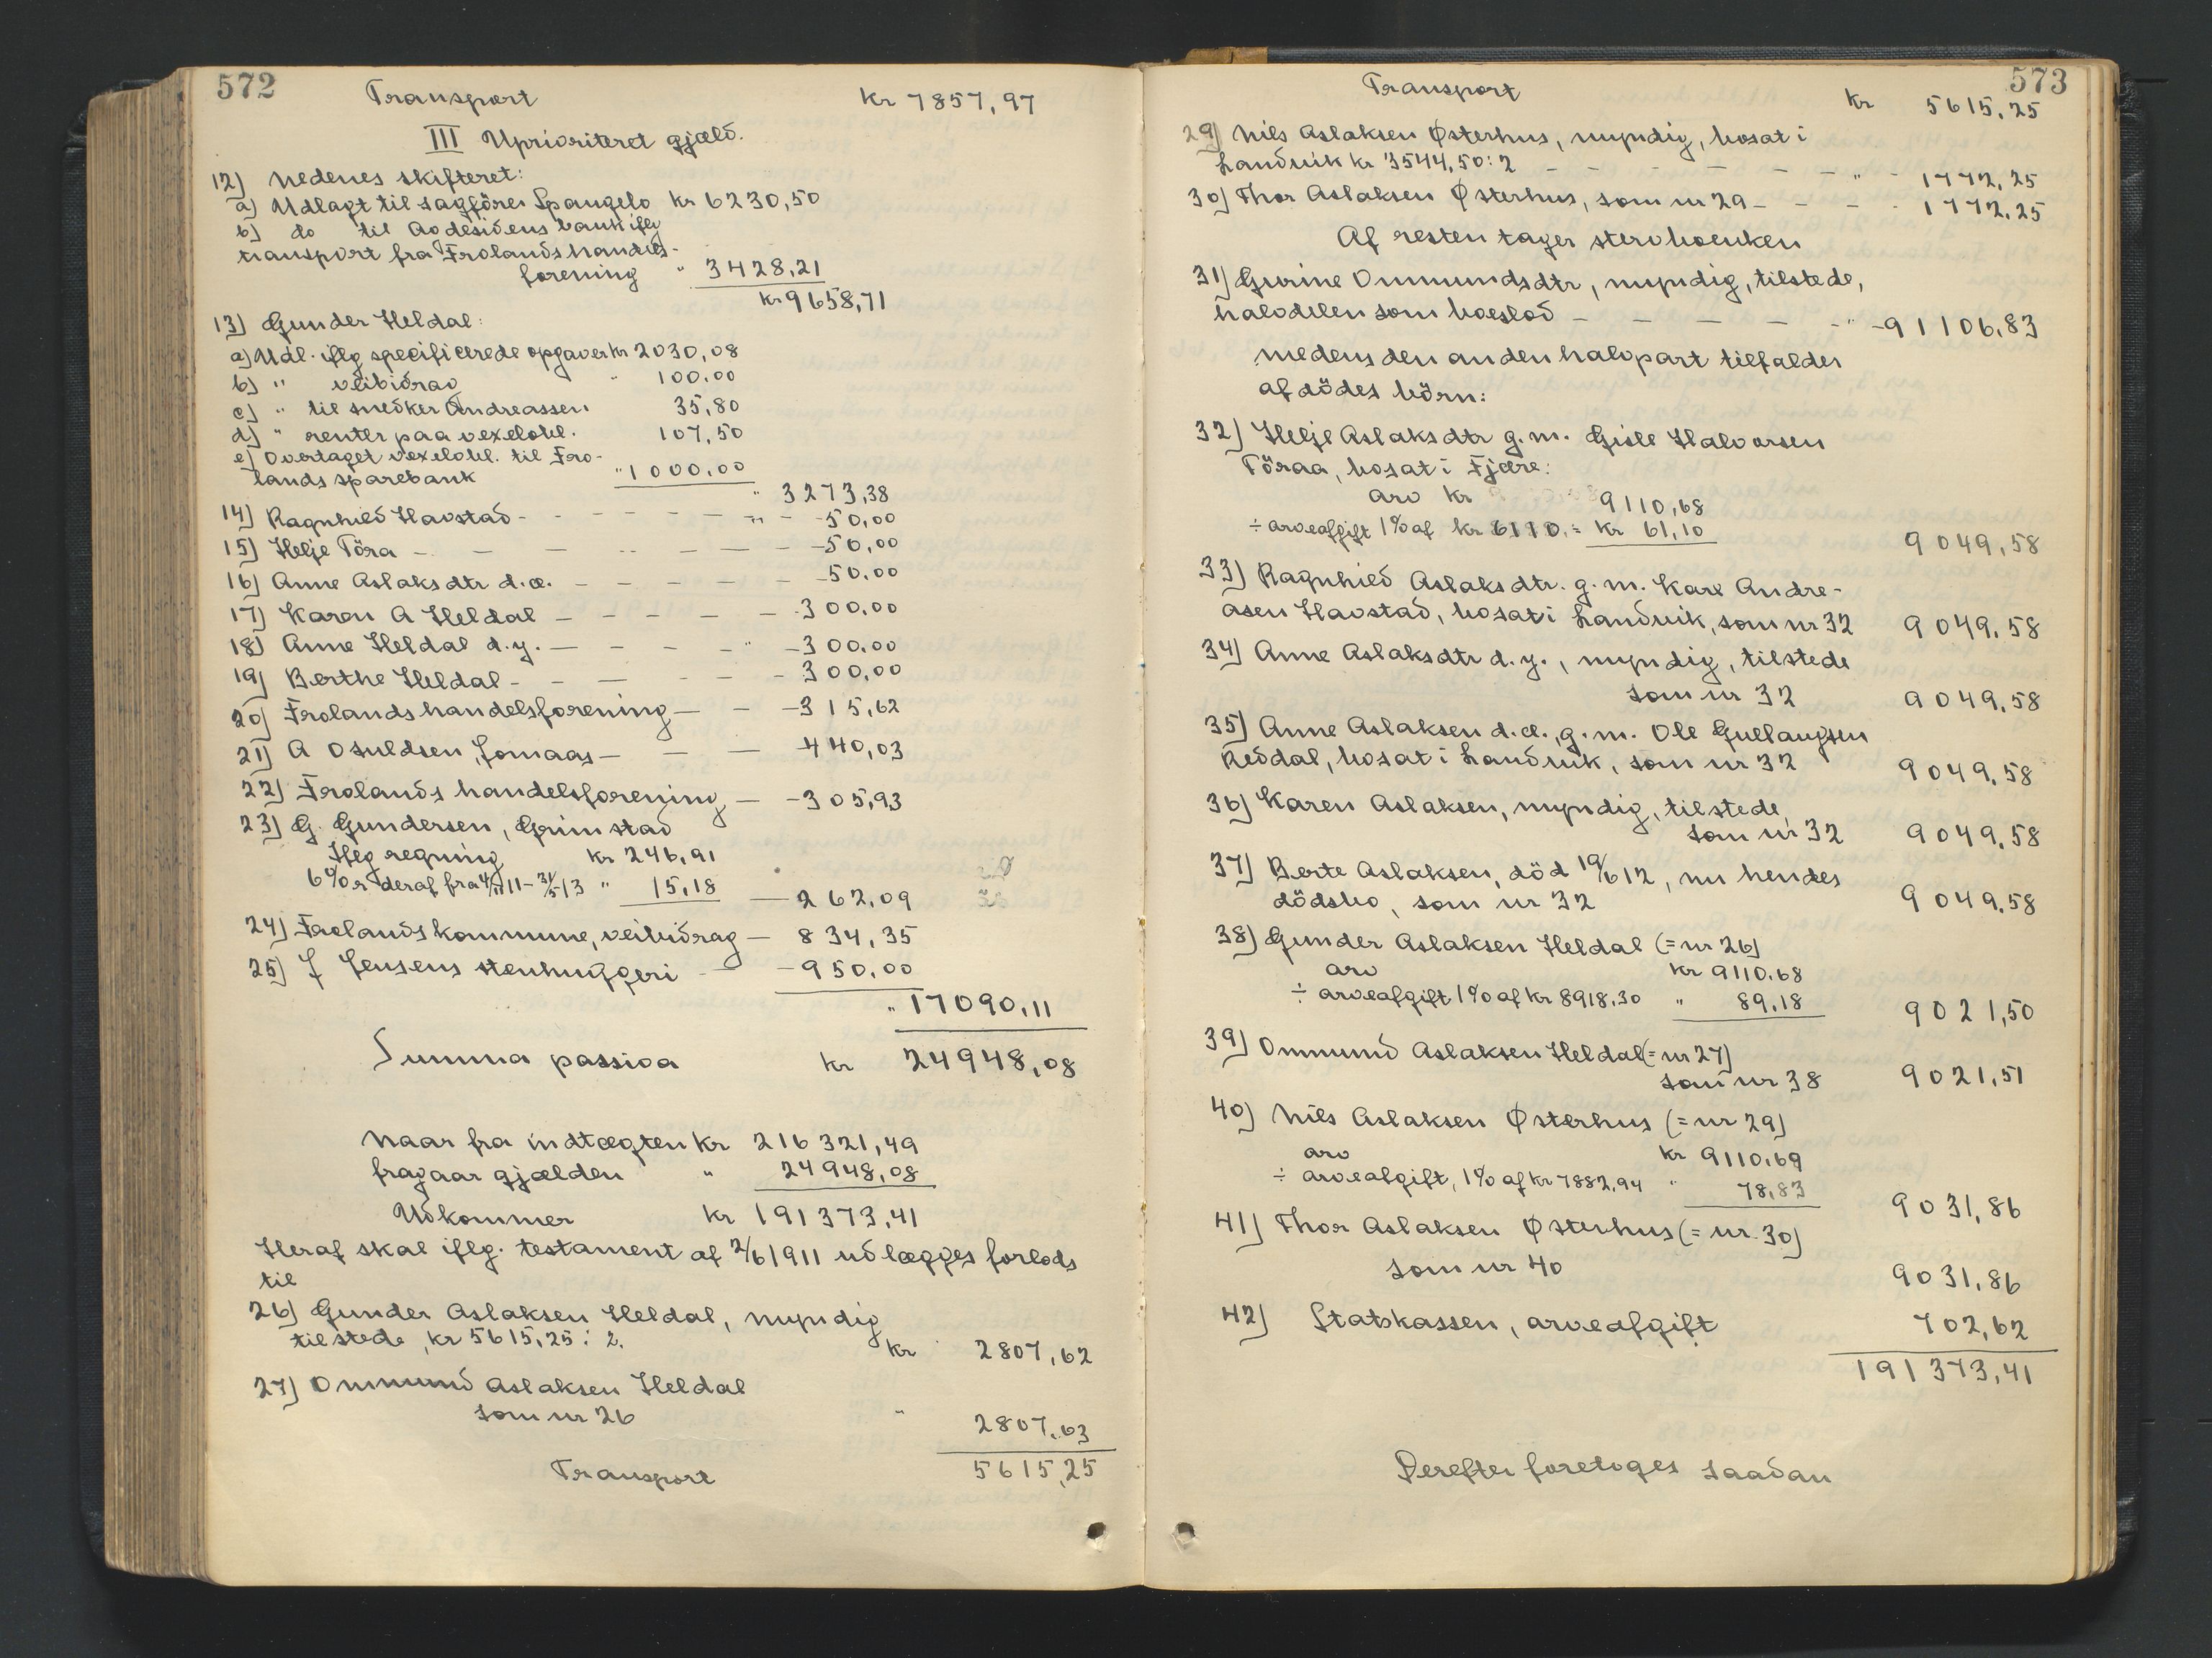 572
Transport kr 7857,97
III Uprioriteret gjæld.
12) Nedenes skifteret:
a) Udlagt til sagförer Spangelo kr 6230,50
b) do til Avdesidens bank iflg
transport fra Frolands handels-
forening " 3428,21
kr 9658,71
13) Gunder Heldal:
a) Udl. iflg specificerede opgaver kr 2030,08
b) " veibidrag " 100,00
c) " til snedker Andreassen 35,80
d) " renter paa vexelobl. 107,50
e) Overtaget vexelobl. til Fro-
lands sparebank " 1000,00
" 3273,38
14) Ragnhild Havstad - - - - - " - 50,00
15) Helje Töra - - - - - - 50,00
16) Anne Aslaksdtr d.æ. - - - - - 50,00
17) Karen A Heldal - - - - - 300,00
18) Anne Heldal d.y. - - - - " - 300,00
19) Berthe Heldal - - - - - 300,00
20) Frolands handelsforening - - - 315,62
21) A Osuldsen, Jomaas - - - 440,03
22) Frolands handelsforening - - 305,93
23) G. Gundersen, Grimstad
Iflg regning kr 246,91
6% r deraf fra 4/11 11 - 31/5 13 " 15,18 - 262,09
24) Frolands kommune, veibidrag - 834,35
25) J Jensens stenhuggeri - - 950,00
" 17090,11
Summa passiva kr 24948,08
Naar fra indtægten kr 216321,49
fragaar gjælden " 24948,08
Udkommer kr 191373,41
Heraf skal iflg. testament af 2/6 1911 udlægges forlods
til
26) Gunder Aslaksen Heldal, myndig
tilstede, kr 5615,25 : 2. kr 2807,62
27) Ommund Aslaksen Heldal
som nr 26 " 2807,63
Transport 5615,25
573
Transport kr 5615,25
29) Nils Aslaksen Østerhus, myndig, bosat i
Landvik kr 3544,50 : 2 - - - - - " - 1772,25
30) Thor Aslaksen Østerhus, som nr 29 - - - - 1772,25
Af resten tager stervboenken
31) Gurine Ommundsdtr, myndig, tilstede,
halvdelen som boeslod - - - - - " - 91106,83
medens den anden halvpart tilfalder
afdödes börn:
32) Helje Aslaksdtr g.m. Gisle Halvorsen
Töraa, bosat i Fjære:
arv kr 9110,68
÷ arveafgift 1% af kr 6110. = kr 61,10 9049,58
33) Ragnhild Aslaksdtr. g.m. Kare Andre-
asen Havstad, bosat i Landvik, som nr 32 9049,58
34) Anne Aslaksdtr d.y., myndig, tilstede
som nr 32 9049,58
35) Anne Aslaksen d.æ., g.m. Ole Gullaugsen
Reddal, bosat i Landvik, som nr 32 9049,58
36) Karen Aslaksen, myndig, tilstede,
som nr 32 9049,58
37) Berte Aslaksen, död 19/6 12, nu hendes
dödsbo, som nr 32 9049,58
38) Gunder Aslaksen Heldal (= nr 26)
arv kr 9110,68
÷ arveafgift 1% af kr 8918,30 " 89,18 9021,50
39) Ommund Aslaksen Heldal (= nr 27)
som nr 38 9021,51
40) Nils Aslaksen Østerhus (= nr 29)
arv kr 9110,69
÷ arveafgift, 1% af kr 7882,94 " 78,83 9031,86
41) Thor Aslaksen Østerhus (= nr. 30)
som nr 40 9031,86
42) Statskassen, arveafgift 702,62
191373,41
Derefter foretoges saadan